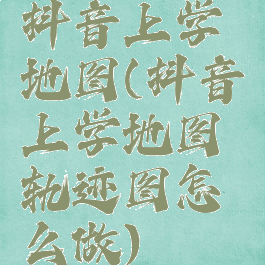 抖音上学
地图(抖音
上学地图
轨迹图怎
么做)